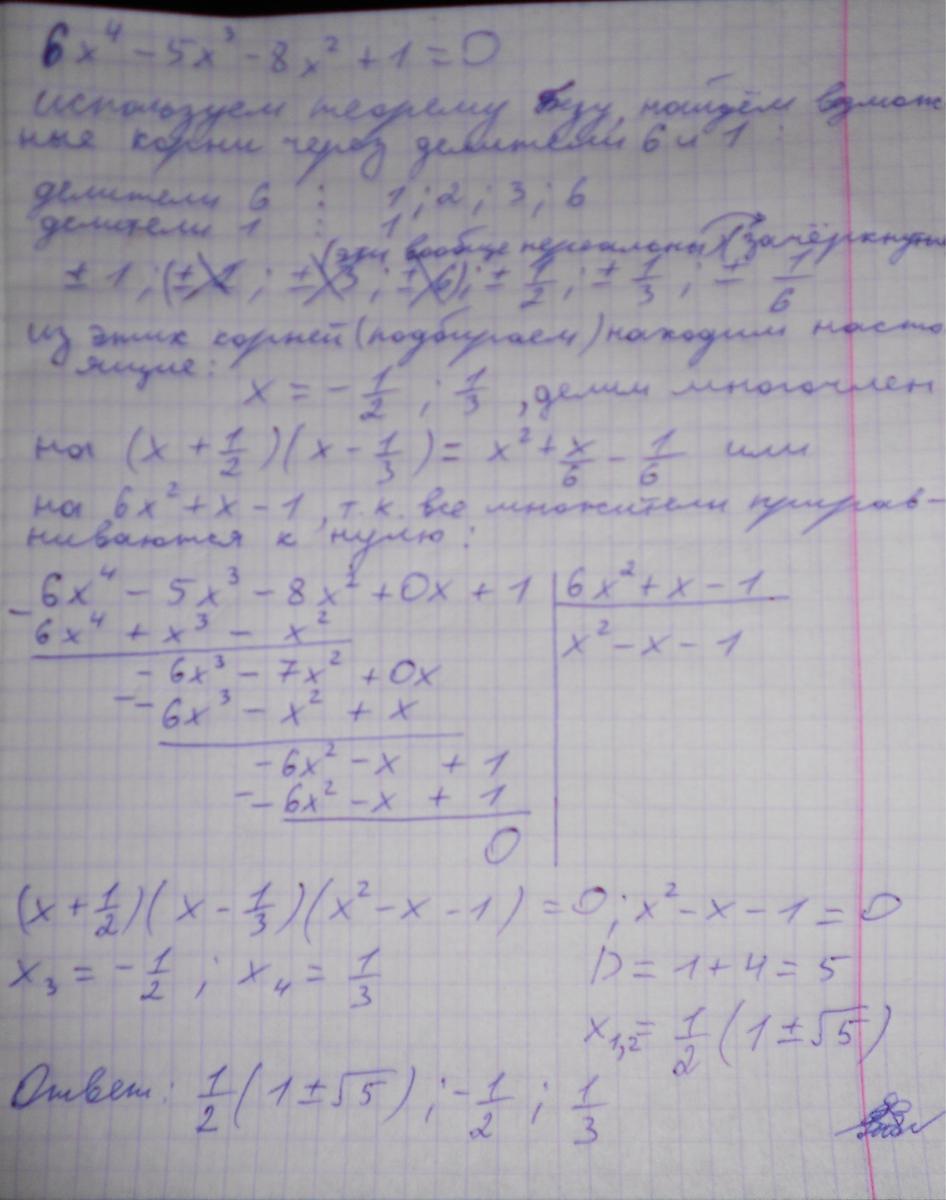 6x⁴ - 5x³ - 8x² + 1 = 0
используем теорему Безу, найдём возмож
ные корни через делители 6 и 1 :
делители 6 : 1 ; 2 ; 3 ; 6
делители 1 : 1
(эти вообще нереальны) (зачёркнутые
± 1 ; (± 2 ; ± 3 ; ± 6) ; ± 1/2 ; ± 1/3 ; ± 1/6
из этих корней (подбираем) находим насто
ящие:
x = - 1/2 ; 1/3 , делим многочлен
на (x + 1/2)(x - 1/3) = x² + x/6 - 1/6 или
на 6x² + x - 1, т.к. все множители прирав-
ниваются к нулю:
- 6x⁴ - 5x³ - 8x² + 0x + 1 | 6x² + x - 1
6x⁴ + x³ - x² | x² - x - 1
- 6x³ - 7x² + 0x
- - 6x³ - x² + x
- 6x² - x + 1
- - 6x² - x + 1
0
(x + 1/2)(x - 1/3)(x² - x - 1) = 0 ; x² - x - 1 = 0
x₃ = - 1/2 ; x₄ = 1/3 D = 1 + 4 = 5
x₁,₂ = 1/2 (1 ± √5)
Ответ: 1/2 (1 ± √5) ; - 1/2 ; 1/3